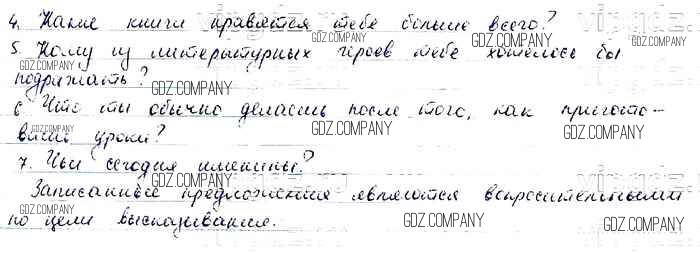 4. Какие книги нравятся тебе больше всего?
5. Кому из литературных героев тебе хотелось бы
подражать?
6 Что ты обычно делаешь после того, как пригото-
вишь уроки?
7. Чьи сегодня именины?
Записанные предложения являются вопросительными
по цели высказывания.
GDZ.COMPANY
GDZ.COMPANY
GDZ.COMPANY
GDZ.COMPANY
GDZ.COMPANY
GDZ.COMPANY
GDZ.COMPANY
GDZ.COMPANY
GDZ.COMPANY
GDZ.COMPANY
GDZ.COMPANY